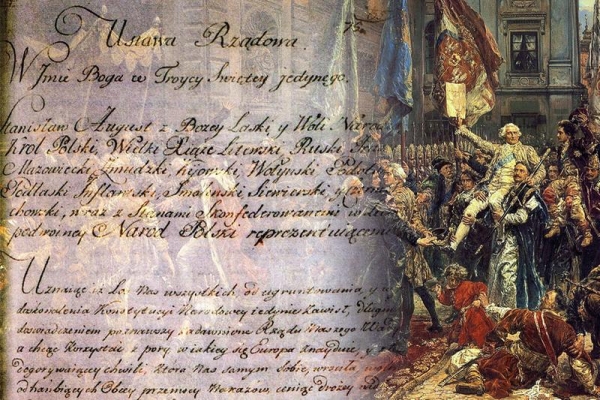 Ustawa Rządowa.
W Imie Boga w Troycy Swiętey jedynego.
Stanisław August z Bożey Łaski y Woli Narodu
Krol Polski, Wielki Xiąże Litewski, Ruski
Mazowiecki, Zmudzki, Kijowski, Wołynski, Podolski
Podlaski Inflantski, Smolenski Siewierski y Czernie-
chowski, wraz z Stanami Skonfederowanemi w
podwoiney Narod Polski reprezentuiącemi
Uznaiąc iż los nas wszystkich, od ugruntowania, y wy
doskonalenia Konstytucyi Narodowey iedynie zawisł, długim
doswiadczeniem poznawszy zadawnione Rządu Naszego Wady
a chcąc korzystać z pory, w iakiey się Europa znayduie, y z
dogorywaiącey chwili, ktora Nas samym Sobie wrociła, wolni
od hańbiących Obcey przemocy Nakazow, ceniąc drożey nad